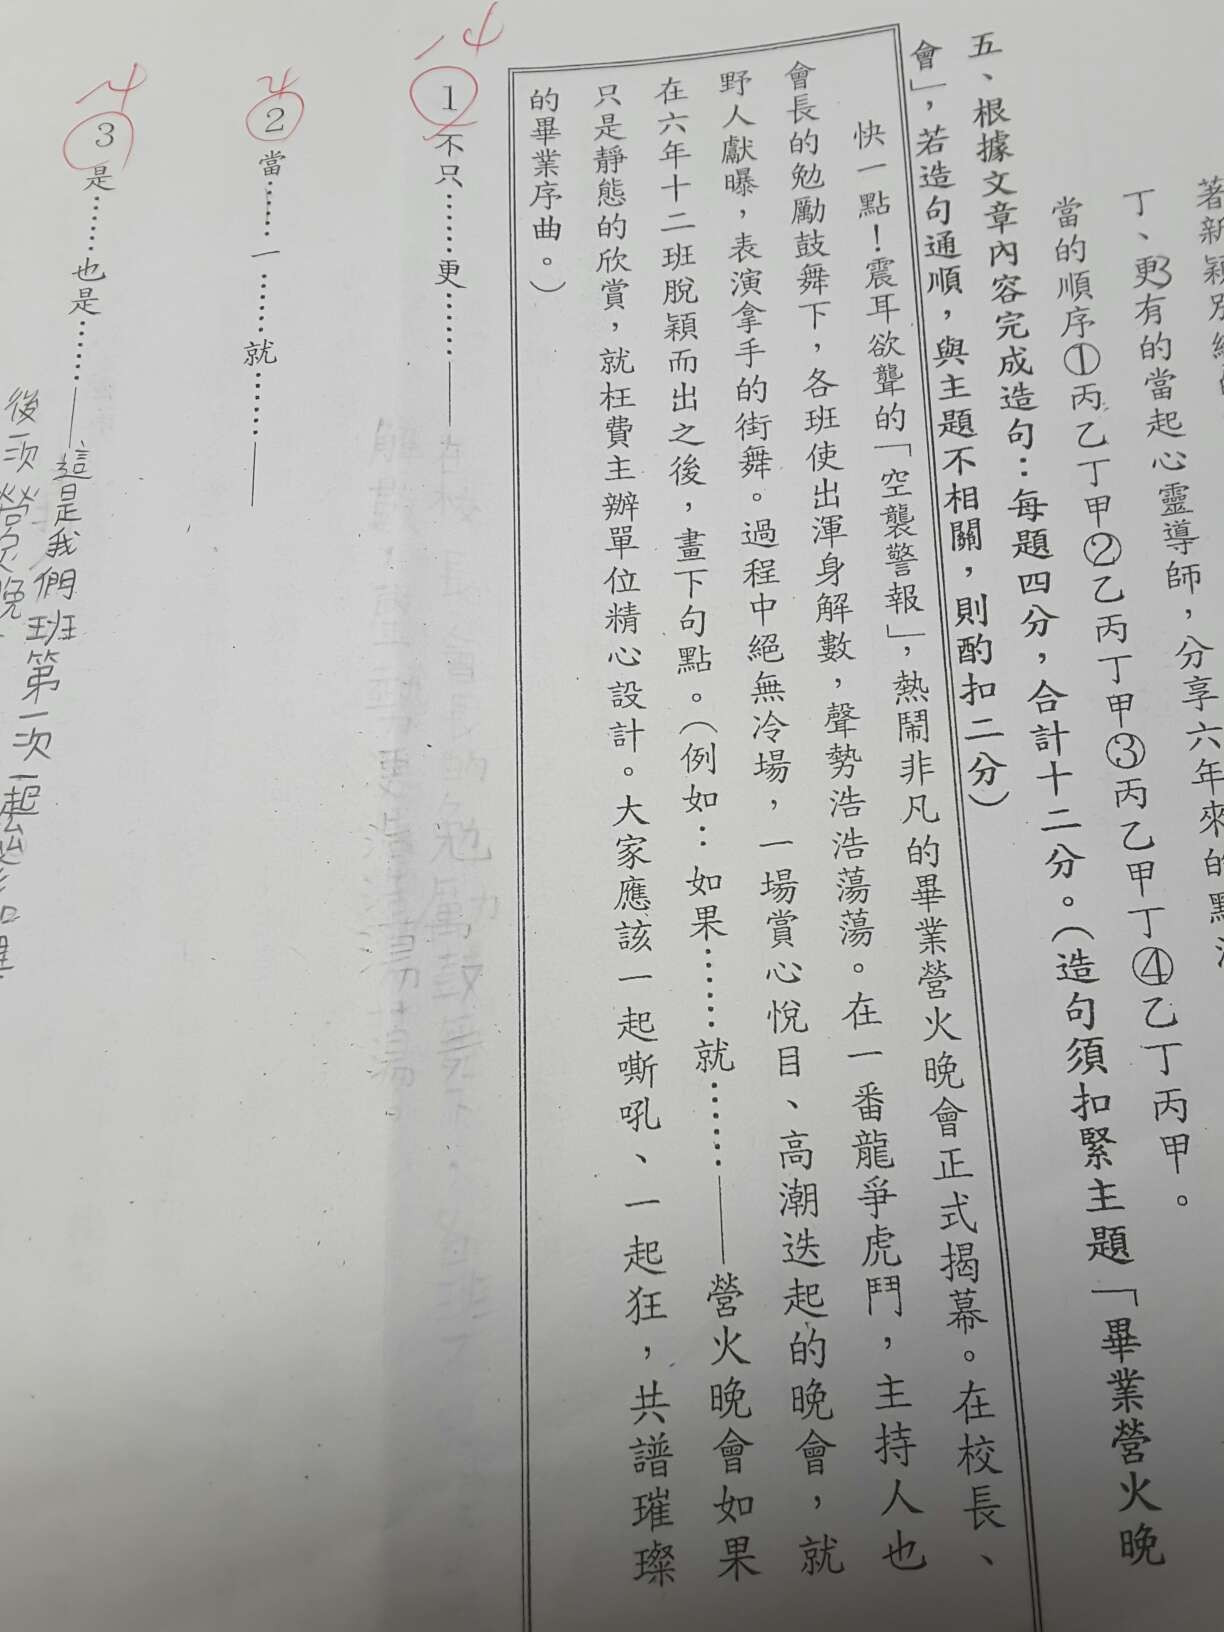 著新穎別
丁、更有的當起心靈導師，分享六年來的點
當的順序①丙乙丁甲②乙丙丁甲③丙乙甲丁④乙丁丙甲。
五、根據文章內容完成造句：每題四分，合計十二分。（造句須扣緊主題「畢業營火晚
會」，若造句通順，與主題不相關，則酌扣二分）
快一點！震耳欲聾的「空襲警報」，熱鬧非凡的畢業營火晚會正式揭幕。在校長、
會長的勉勵鼓舞下，各班使出渾身解數，聲勢浩浩蕩蕩。在一番龍爭虎鬥，主持人也
野人獻曝，表演拿手的街舞。過程中絕無冷場，一場賞心悅目、高潮迭起的晚會，就
在六年十二班脫穎而出之後，畫下句點。（例如：如果……就……——營火晚會如果
只是靜態的欣賞，就枉費主辦單位精心設計。大家應該一起嘶吼、一起狂，共譜璀璨
的畢業序曲。）
-4
1 不只……更……——
4
2 當……一……就……——
-4
3 是……也是……——這是我們班第一次一起
後一次營火晚